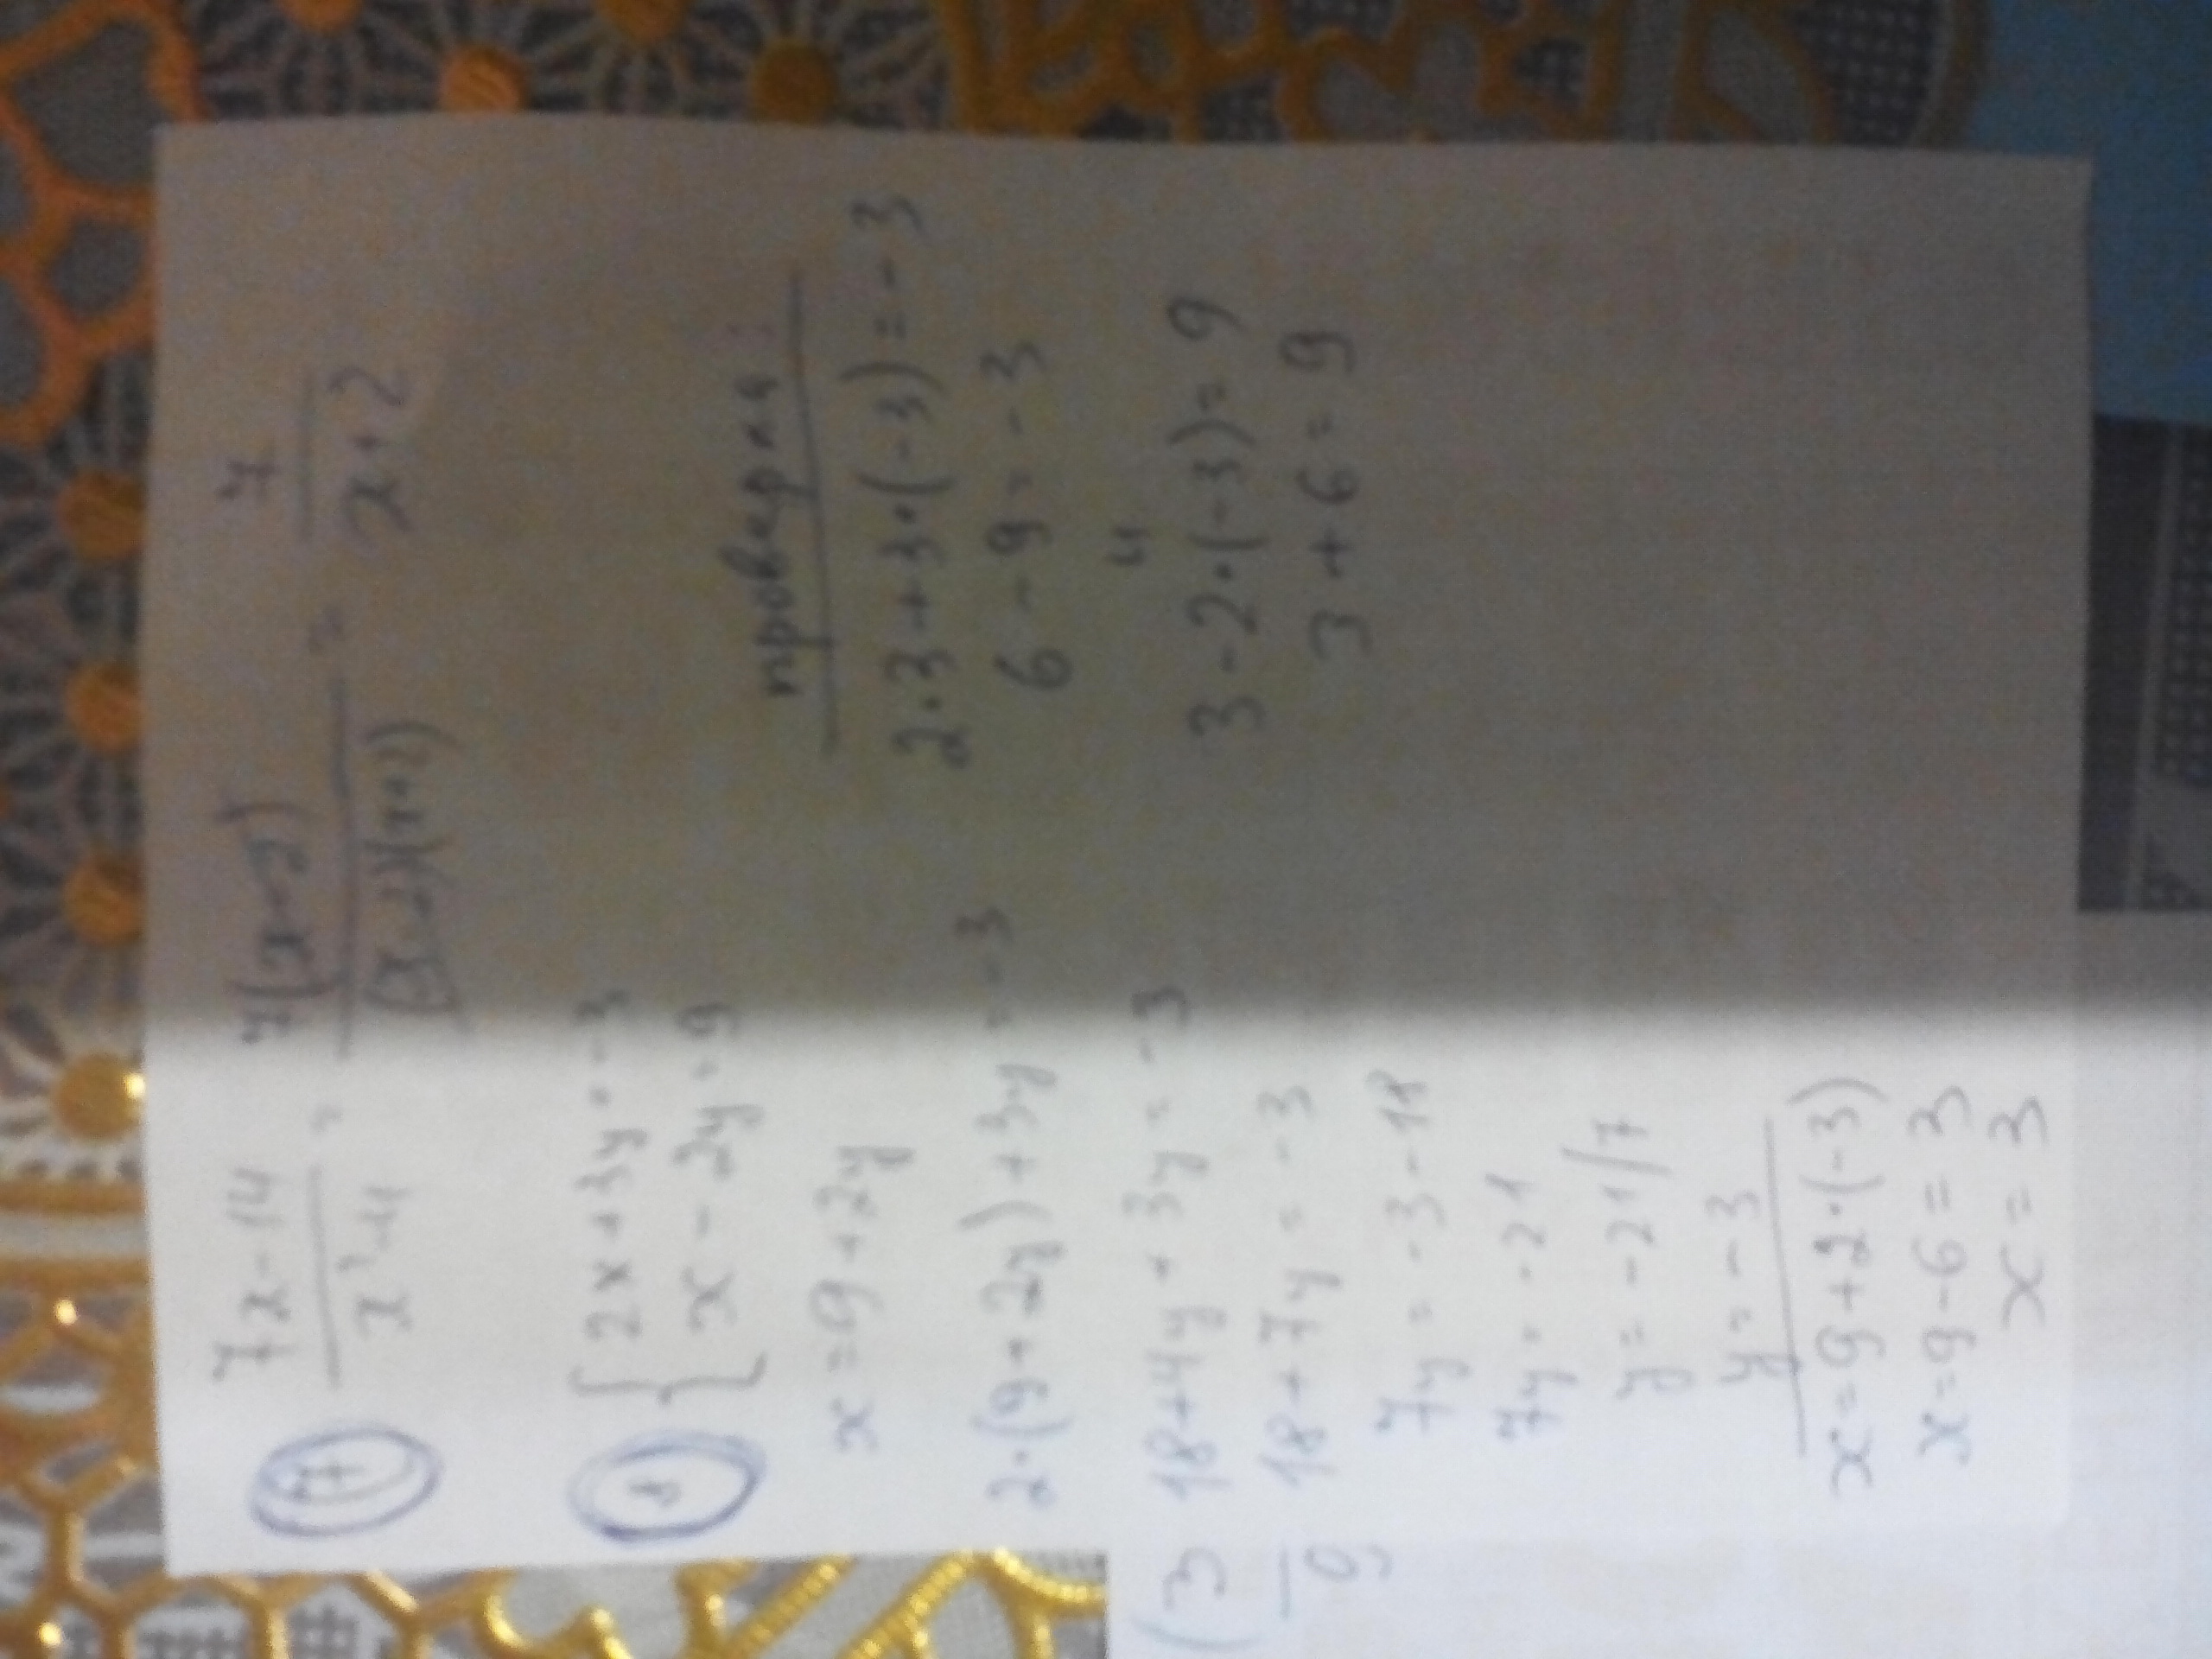 7 (7x-14)/(x²-4) = 7(x-2)/((x-2)(x+2)) = 7/(x+2)
{ 2x+3y=-3
x-2y=9
x=9+2y
2·(9+2y)+3y=-3
18+4y+3y=-3
18+7y=-3
7y=-3-18
7y=-21
y=-21/7
y=-3
x=9+2·(-3)
x=9-6=3
x=3
проверка:
2·3+3·(-3)=-3
6-9=-3
и
3-2·(-3)=9
3+6=9
(3
9